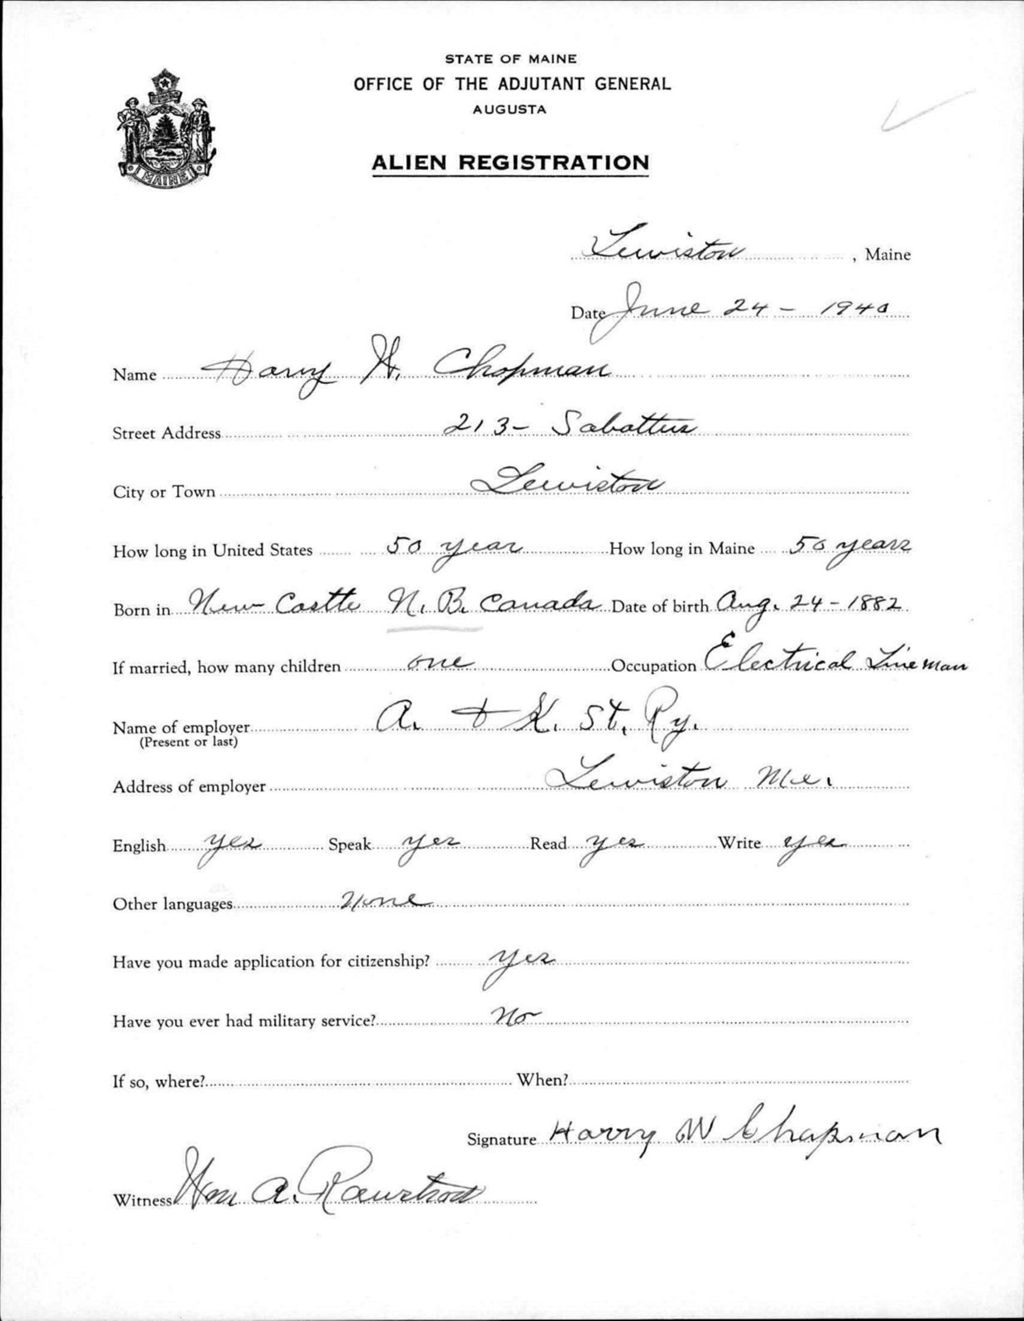 STATE OF MAINE
OFFICE OF THE ADJUTANT GENERAL
AUGUSTA
MAINE
ALIEN REGISTRATION
Lewiston, Maine
Date June 24 - 1940
Name Harry W. Chapman
Street Address 213 - Sabattus
City or Town Lewiston
How long in United States 50 year How long in Maine 50 years
Born in New Castle N. B. Canada Date of birth Aug. 24 - 1882
If married, how many children one Occupation Electrical Lineman
Name of employer A. & K. St. Ry.
(Present or last)
Address of employer Lewiston Me.
English yes Speak yes Read yes Write yes
Other languages None
Have you made application for citizenship? yes
Have you ever had military service? No
If so, where? When?
Signature Harry W Chapman
Witness Wm A.